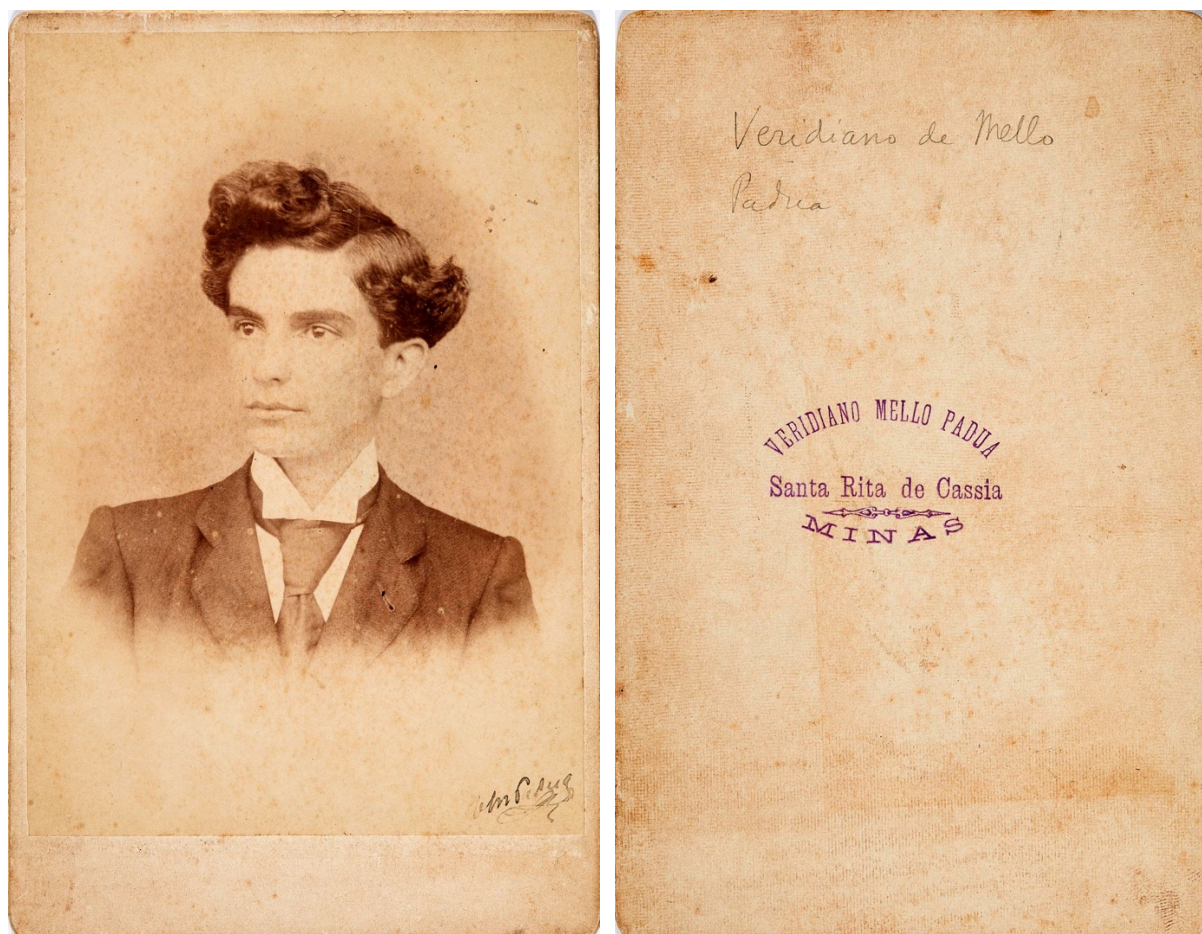 Padua
Veridiano de Mello
Padua
VERIDIANO MELLO PADUA
Santa Rita de Cassia
MINAS